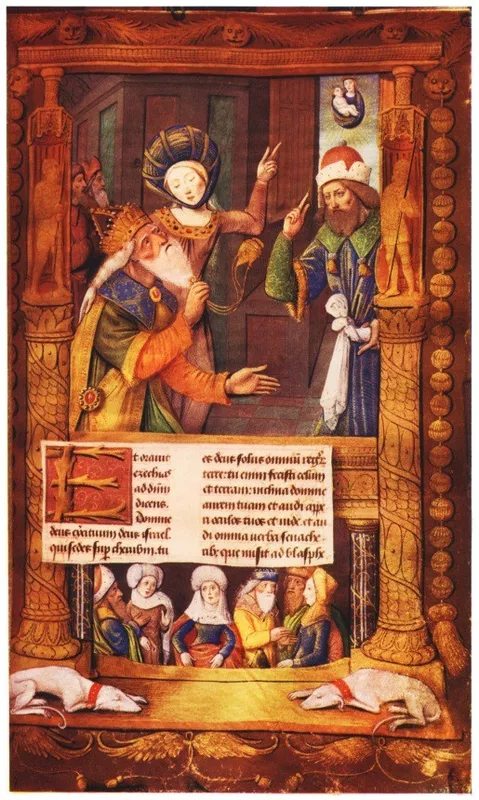 Et orauit
ezechias
ad dnm̄
dicens.
Domine
deus exrātuum deus israel.
qui sedes sup̄ cherubin. tu
es deus solus omniū regū
terre: tu enim fecisti celum
et terram: inclina domine
aurem tuam et audi appe
ri oculos tuos et uide. et au
di omnia uerba senache
rib: que misit ad blasphe